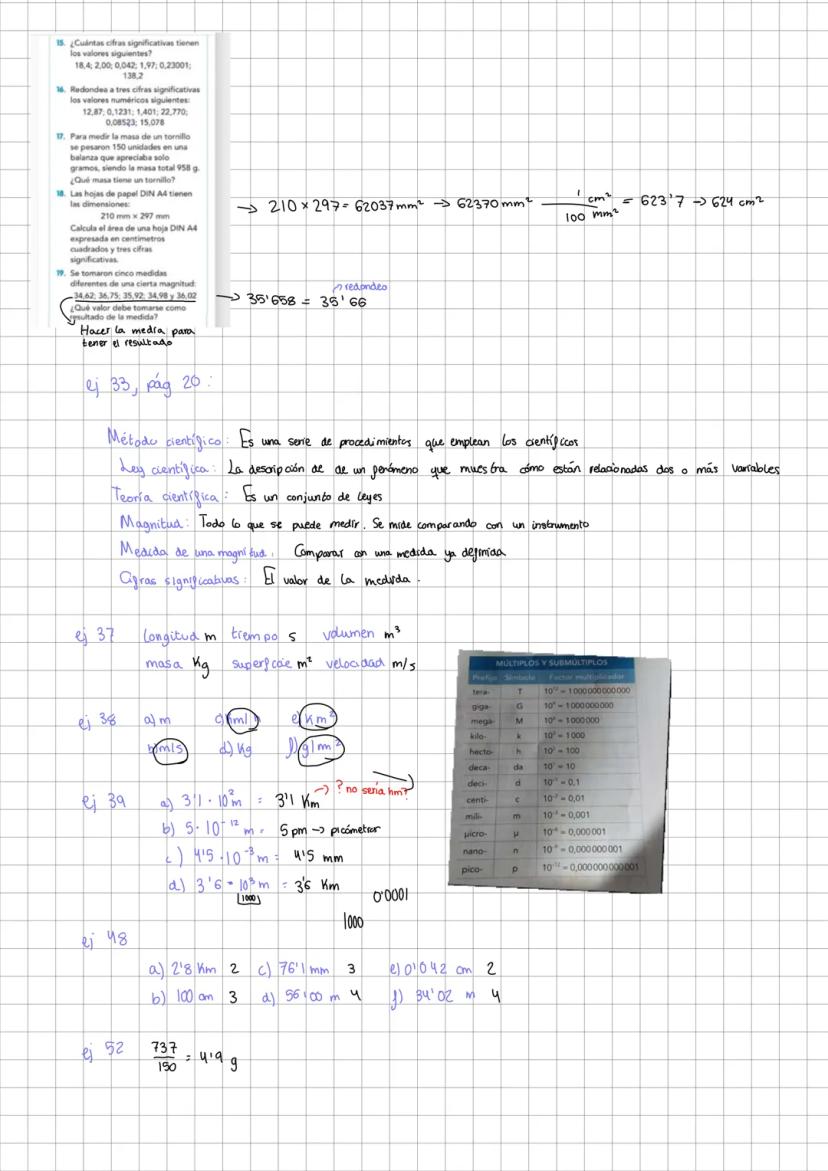 15. ¿Cuántas cifras significativas tienen
los valores siguientes?
18,4; 2,00; 0,042; 1,97; 0,23001;
138,2
16. Redondea a tres cifras significativas
los valores numéricos siguientes:
12,87; 0,1231; 1,401; 22,770;
0,08523; 15,078
17. Para medir la masa de un tornillo
se pesaron 150 unidades en una
balanza que apreciaba solo
gramos, siendo la masa total 958 g.
¿Qué masa tiene un tornillo?
18. Las hojas de papel DIN A4 tienen
las dimensiones:
210 mm × 297 mm
Calcula el área de una hoja DIN A4
expresada en centímetros
cuadrados y tres cifras
significativas.
→ 210 × 297 = 62037 mm² → 62370 mm² 1 cm² / 100 mm² = 623'7 → 624 cm²
19. Se tomaron cinco medidas
diferentes de una cierta magnitud:
34,62; 36,75; 35,92; 34,98 y 36,02
¿Qué valor debe tomarse como
resultado de la medida?
→ redondeo
→ 35'658 = 35'66
Hacer la media para
tener el resultado
ej 33, pág 20:
Método científico: Es una serie de procedimientos que emplean los científicos
Ley científica: La descripción de de un fenómeno que muestra cómo están relacionadas dos o más variables
Teoría científica: Es un conjunto de leyes
Magnitud: Todo lo que se puede medir. Se mide comparando con un instrumento
Medida de una magnitud: Comparar con una medida ya definida
Cifras significativas: El valor de la medida.
ej 37 longitud m tiempo s volumen m³
masa Kg superficie m² velocidad m/s
MÚLTIPLOS Y SUBMÚLTIPLOS
Prefijo Símbolo Factor multiplicador
tera- T 10¹² = 1 000 000 000 000
giga- G 10⁹ = 1 000 000 000
mega- M 10⁶ = 1 000 000
kilo- k 10³ = 1 000
hecto- h 10² = 100
deca- da 10¹ = 10
deci- d 10⁻¹ = 0,1
centi- c 10⁻² = 0,01
mili- m 10⁻³ = 0,001
micro- µ 10⁻⁶ = 0,000 001
nano- n 10⁻⁹ = 0,000 000 001
pico- p 10⁻¹² = 0,000 000 000 001
ej 38 a) m e) Km²
b) m/s d) Kg f) g/m²
ej 39 a) 3'1 · 10² m = 3'1 Km → ? no sería hm?
b) 5 · 10⁻¹² m = 5 pm → picómetros
c) 4'5 · 10⁻³ m = 4'5 mm
d) 3'6 · 10³ m = 3'6 Km
1000
0'0001
1000
ej 48
a) 2'8 Km 2 c) 76'1 mm 3 e) 0'042 cm 2
b) 100 cm 3 d) 56'00 m 4 f) 34'02 m 4
ej 52 737 / 150 = 4'9 g